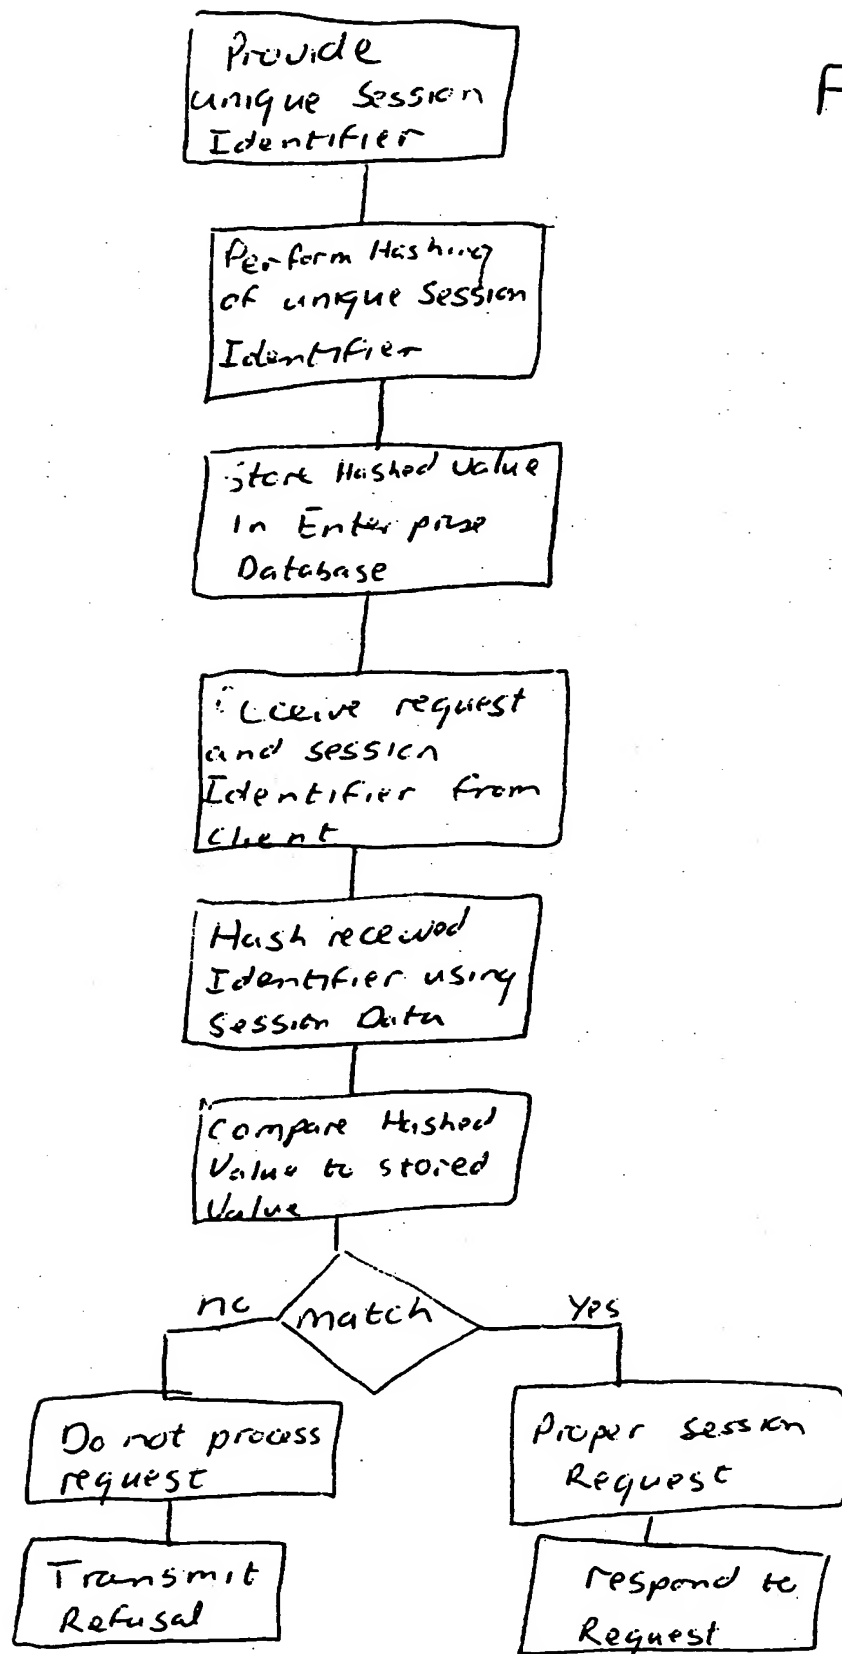 Provide
unique Session
Identifier
F
Perform Hashing
of unique Session
Identifier
Store Hashed Value
In Enterprise
Database
and session
request
Identifier from
Client
Hash received
Identifier using
Session Data
Compare Hashed
Value to stored
Value
match
no
Yes
Do not process
request
Proper session
Request
Transmit
Refusal
respond to
Request